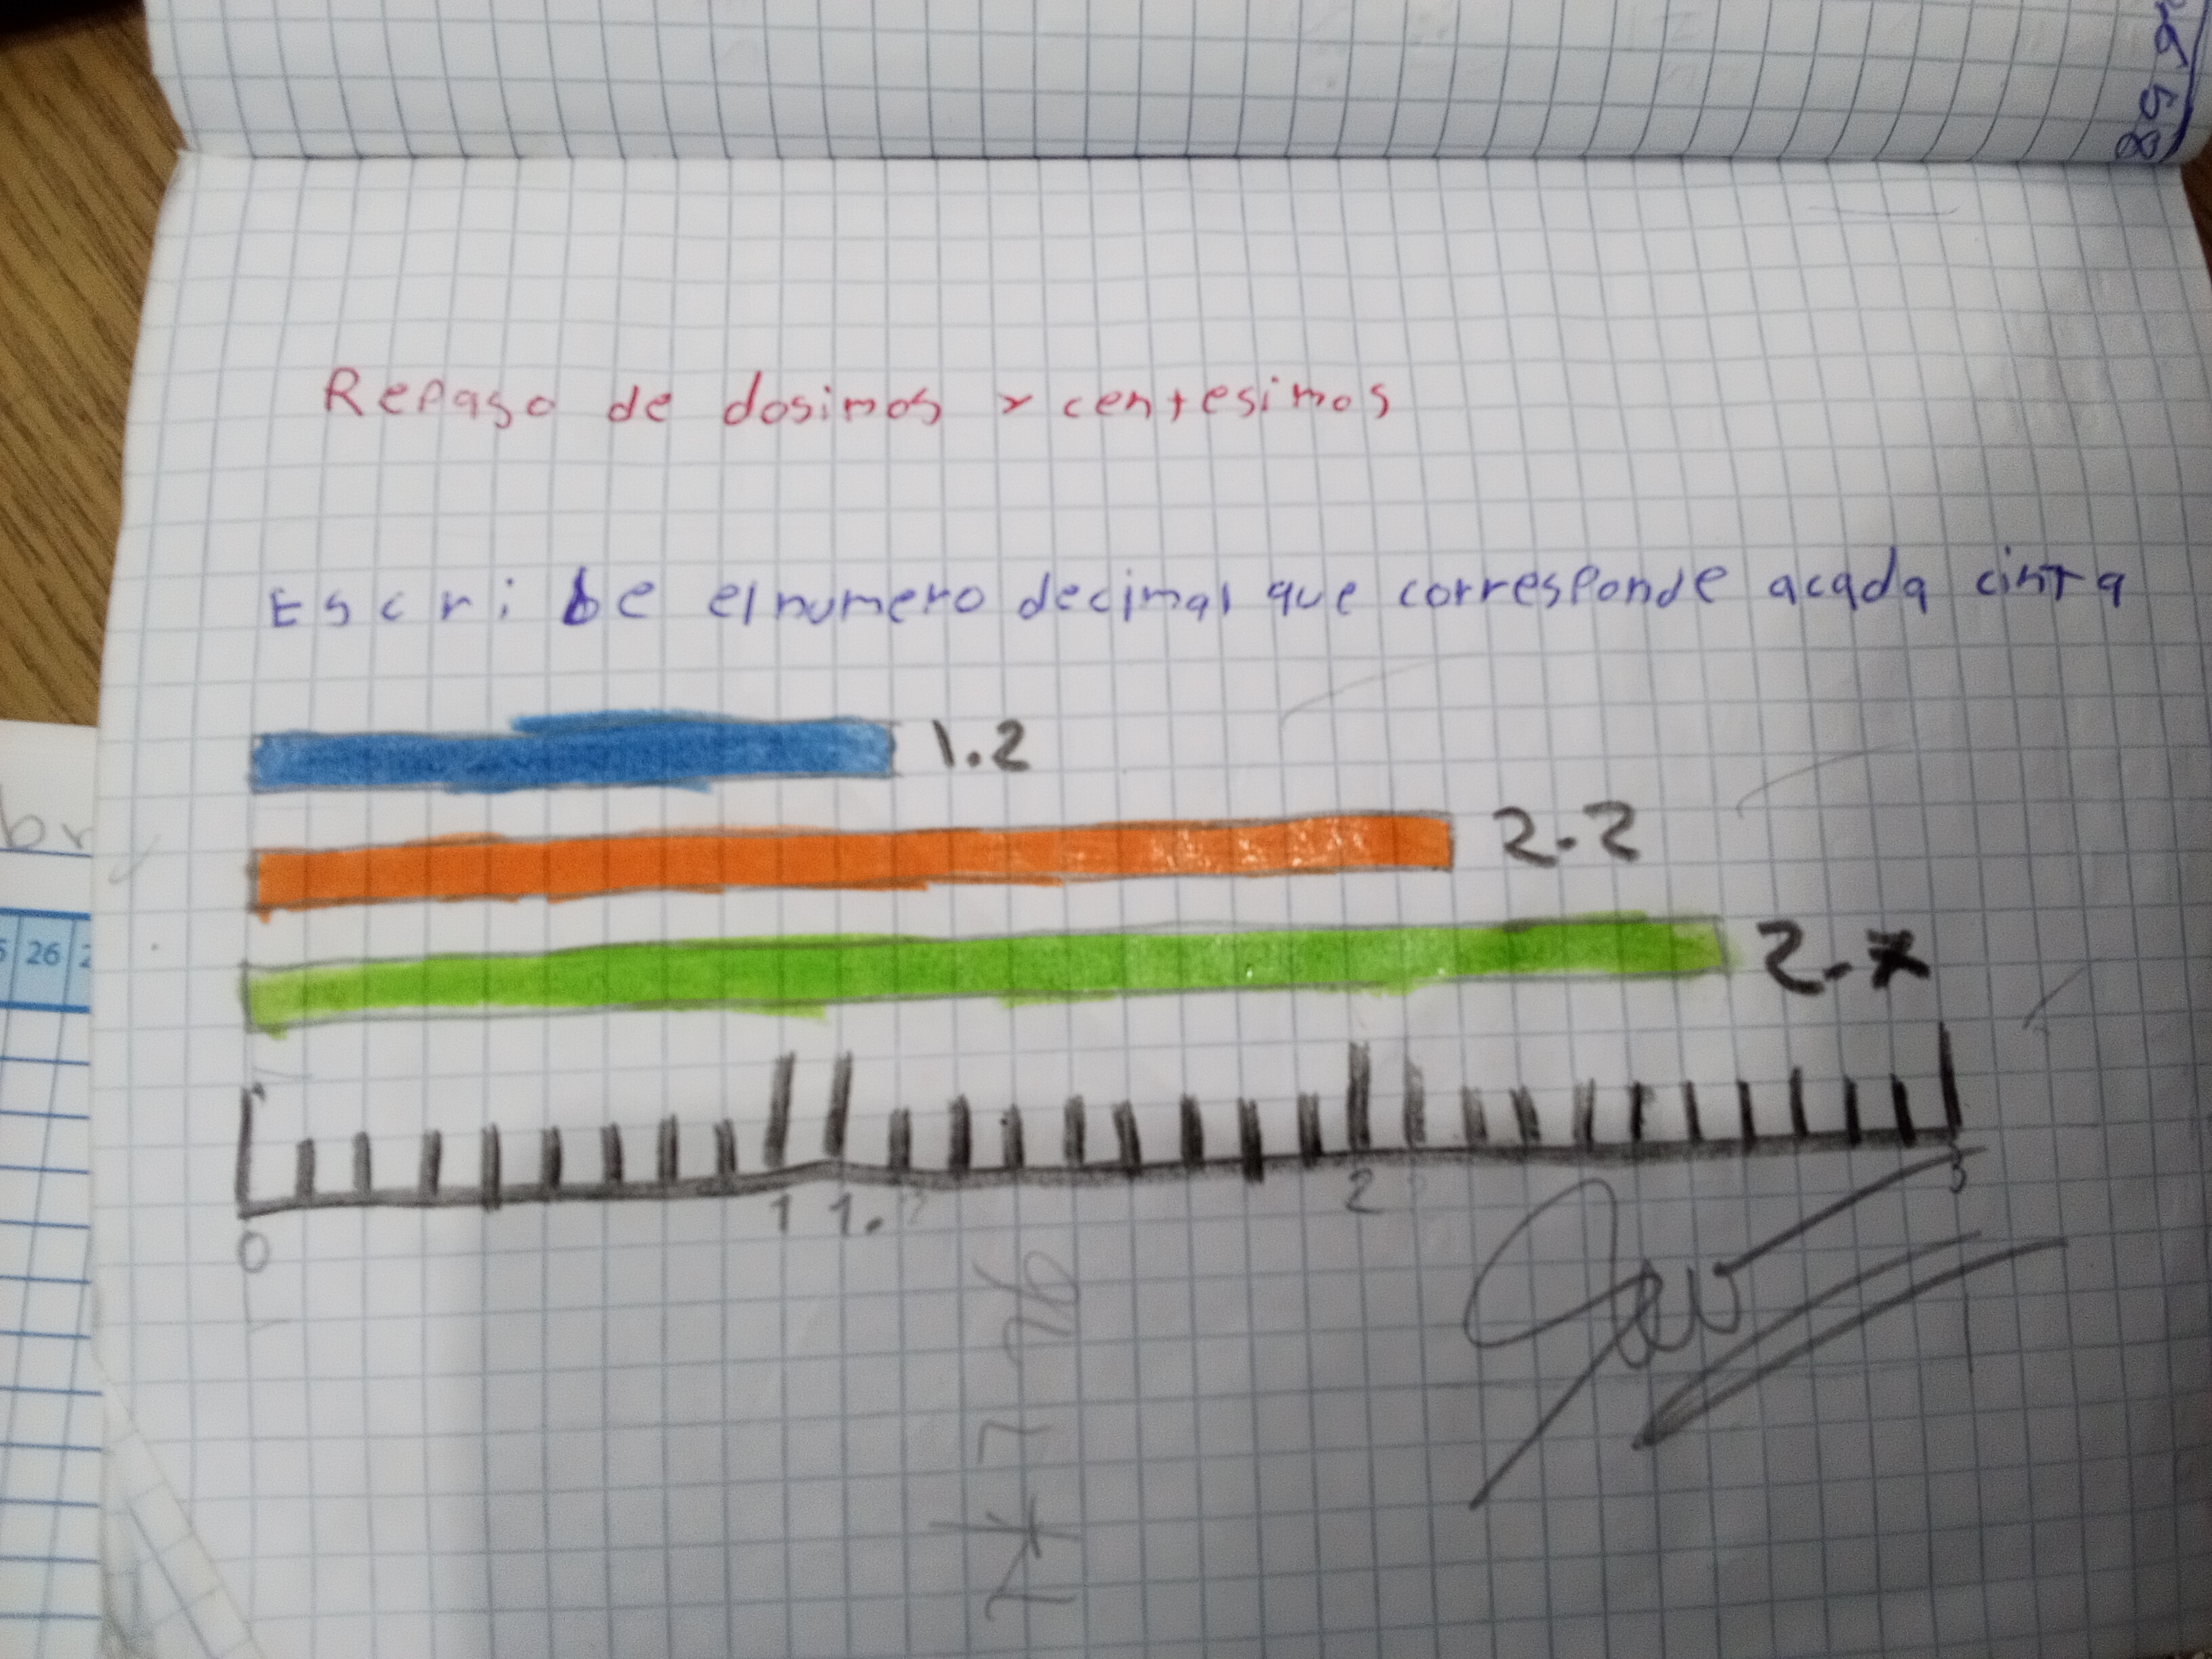 Repaso de dosimos y centesimos
Escri be el numero decimal que corresponde acada cinta
1.2
2.2
2.7
0 1 1. 2 3
26